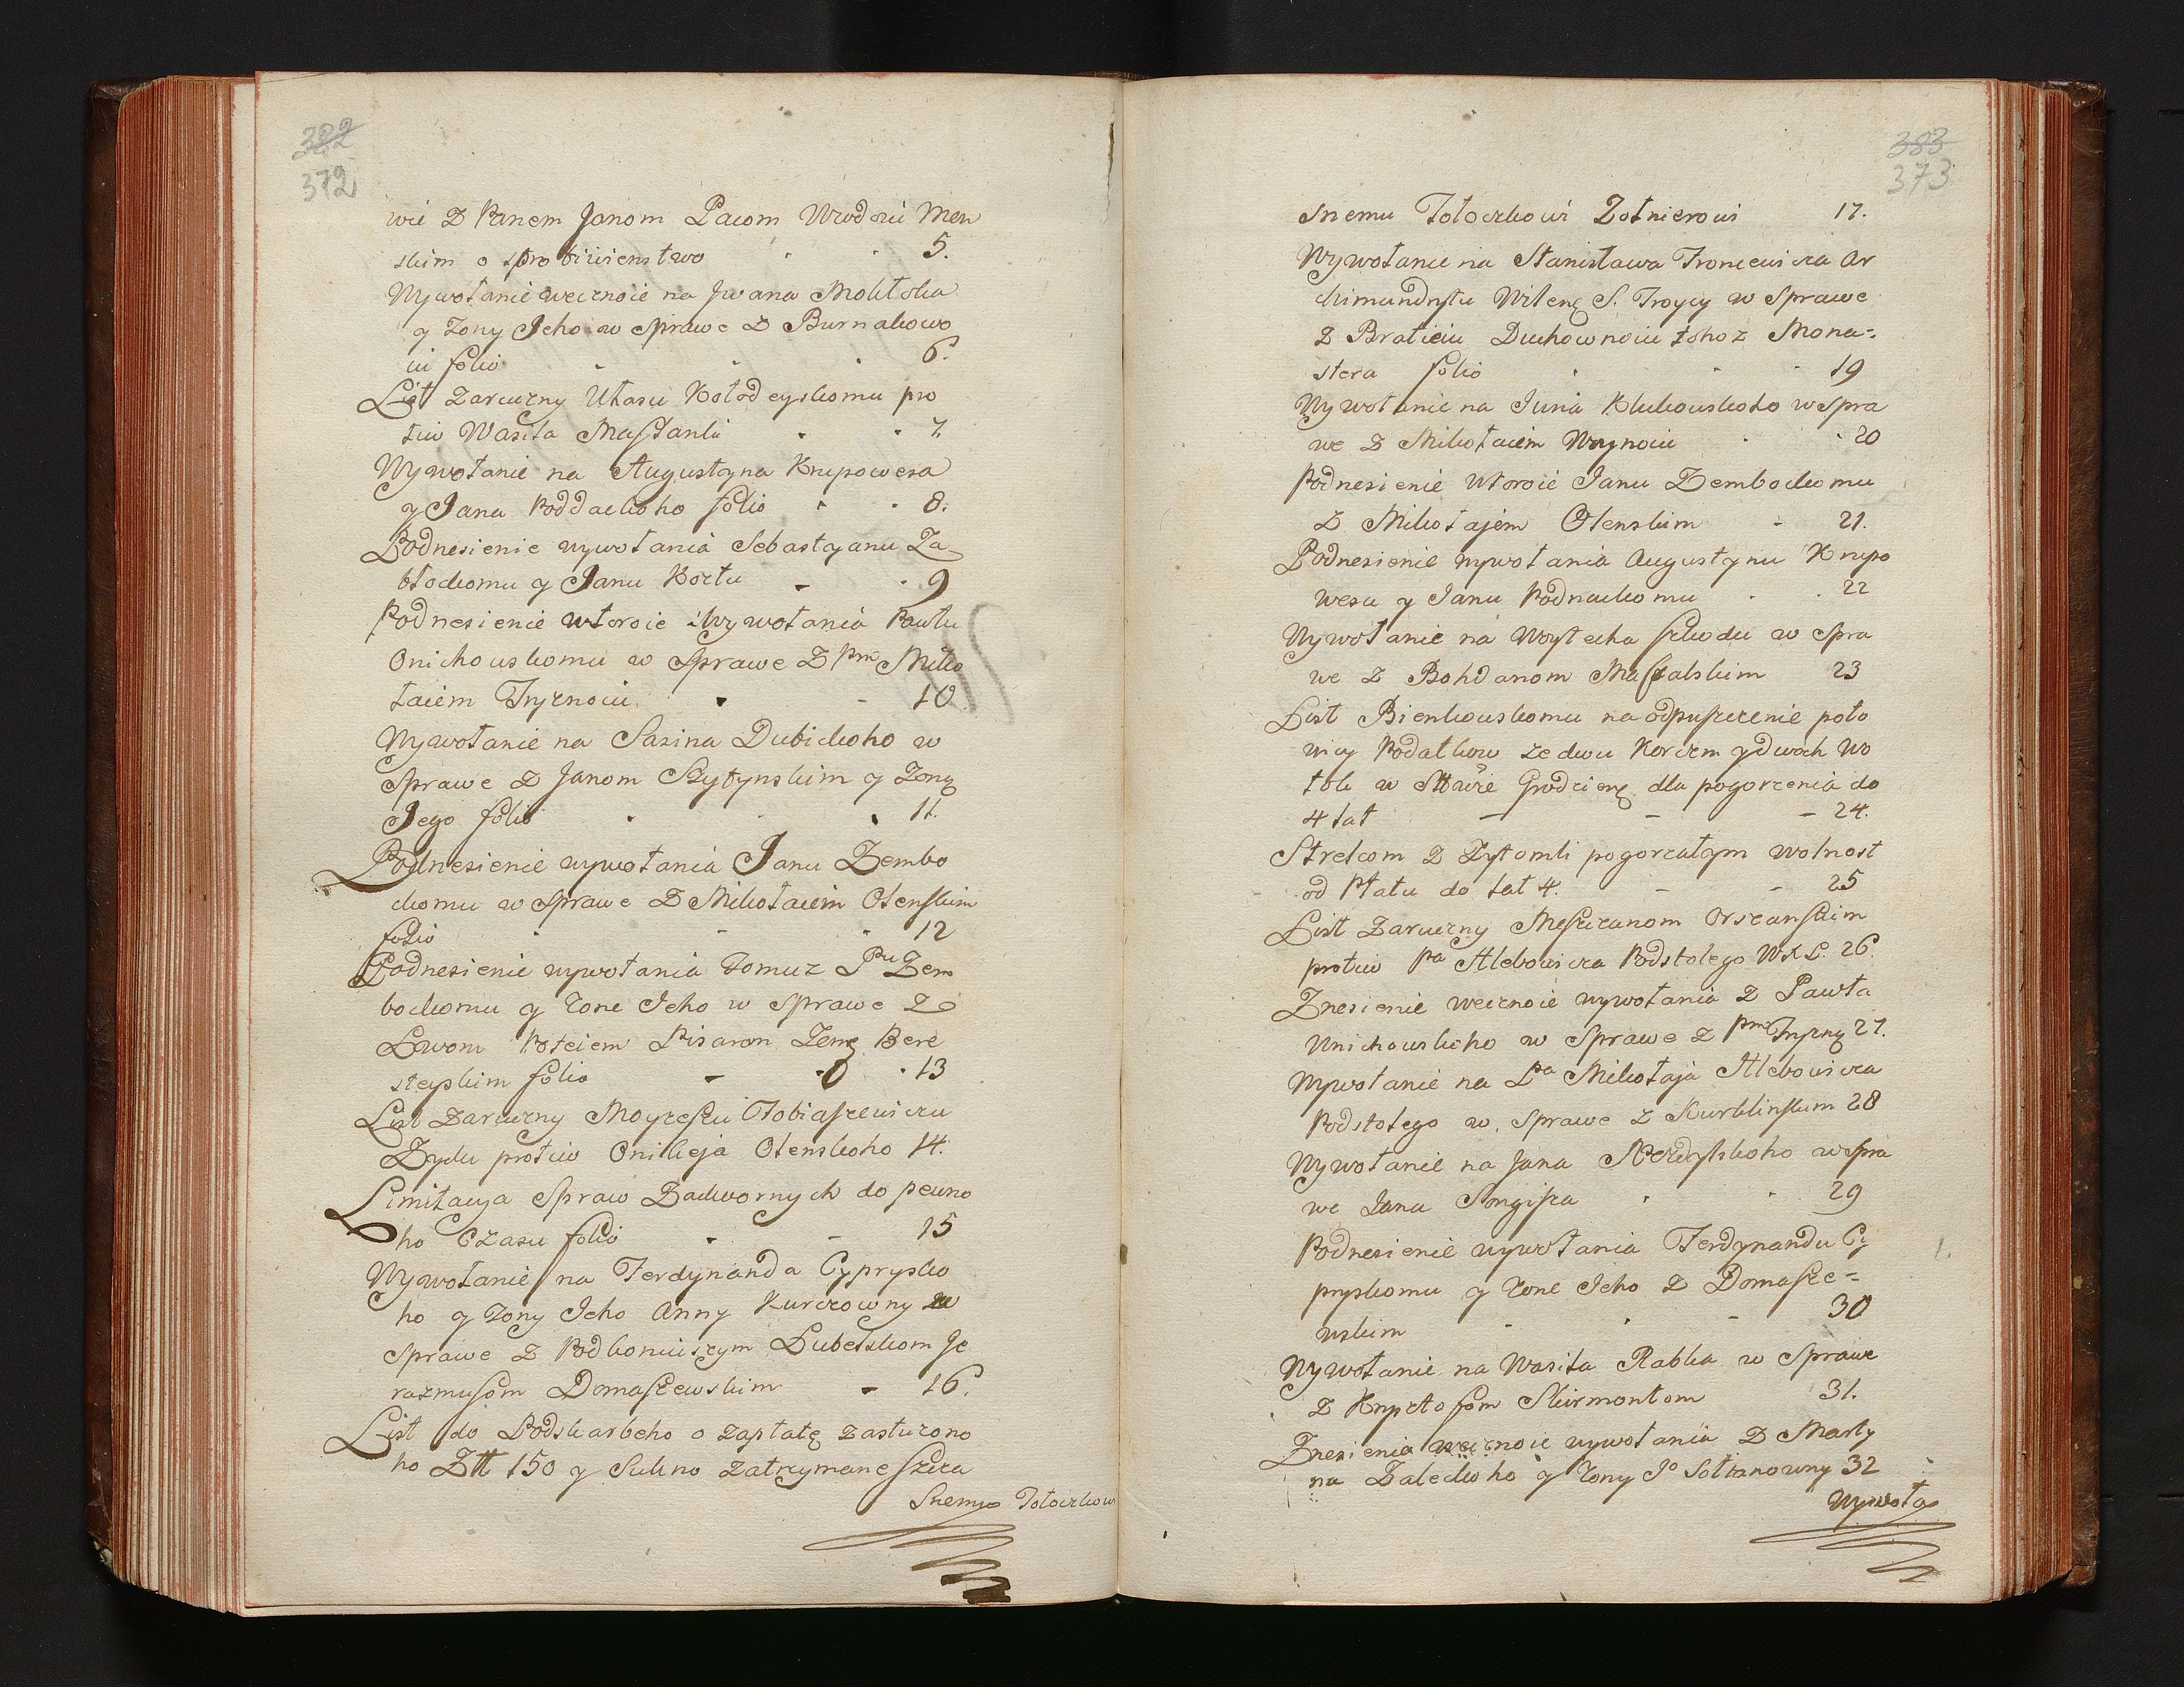 382
372
wie z Panem Janom Pacom Wwodoiu Men
skim o sprotiwienstwo 5.
Wywołanie wecznoie na Jwana Mokłoka
y Zony Jeho w Sprawe z Burnakowo
iu folio 6.
List Zaruczny Ułasu Kołodeyskomu pro
tiw Wasila Masłanki 7.
Wywołanie na Augustyna Krupowesa
y Jana Poddackoho folio 8.
Podnesienie wywołania Sebastyanu Za
błockomu y Janu Kortu 9
Podnesienie wtoroie Wywołania Pawłu
Onichouskomu w Sprawe z Pm Miko
łaiem Tryznoiu 10
Wywołanie na Sasina Dubickoho w
Sprawe z Janom Szytynskim y Zonę
Jego folio 11.
Podnesienie wywołania Janu Zembo
ckomu w Sprawe z Mikołaiem Olenskim
folio 12
Podnesienie wywołania Tomuz Pnu Zem
bockomu y Zone Jeho w Sprawe z
Lwom Poteiem Pisarom Zemę Bere
steyskim folio 13
List Zaruczny Moyzeszu Tobiaszewiczu
Zydu protiw Onikieja Olenskoho 14.
Limitacya Spraw Zadwornych do pewno
ho Czasu folio 15
Wywołanie na Ferdynanda Cyprysko
ho y Zony Jeho Anny Kurczowny w
Sprawe z Podkoniuszym Lubelskom Je
razmusom Domaszewskim 16.
List do Podskarbeho o zapłatę zasłuzono
ho Złł 150 y Sukno zatrzymane szcza
Snemu Tołoczkow
383
373
snemu Tołoczkowi Zołnierowi 17.
Wywołanie na Stanisława Troncewicza Ar
chimandrytu Wilenę S. Troycy w Sprawe
z Bratieiu Duchownoiu tohoz Mona=
stera folio 19
Wywołanie na Juria Klukouskoho w Spra
we z Mikołaiem Woynoiu 20
Podnesienie Wtoroie Janu Zembockomu
z Mikołajem Olenskim 21.
Podnesienie wywołania Augustynu Krupo
wesu y Janu Podnackomu 22
Wywołanie na Woytecha szkodu w Spra
we z Bohdanom Masalskim 23
List Bienkouskomu na odpuszczenie poło
wicy Podatkow ze dwu Korczm y dwoch Wo
łok w Sttwie Grodzienę dla pogorzenia do
4 lat 24.
Strelcom z Zytomli pogorcałym wolnost
od Płatu do lat 4. 25
List Zaruczny Meszczanom Orszanskim
protiw Pa Hlebowicza Podstolego WXL. 26.
Znesienie wecznoie wywołania z Pawła
Unichouskoho w Sprawe z Pm Tryznę 27.
Wywołanie na Pa Mikołaja Hlebowicza
Podstolego w Sprawe z Kurklinskim 28
Wywołanie na Jana w Spra
we Jana 29
Podnesienie wywołania Ferdynandu Cy
pryskomu y Zone Jeho z Domasze=
wskim 30
Wywołanie na Wasila Rabka w Sprawe
z Krysztofom Skirmontom 31.
Znesienia wecznoie wywołania z Marty
na Zaleckoho y Zony Jo Sołtanowny 32
Wywoła